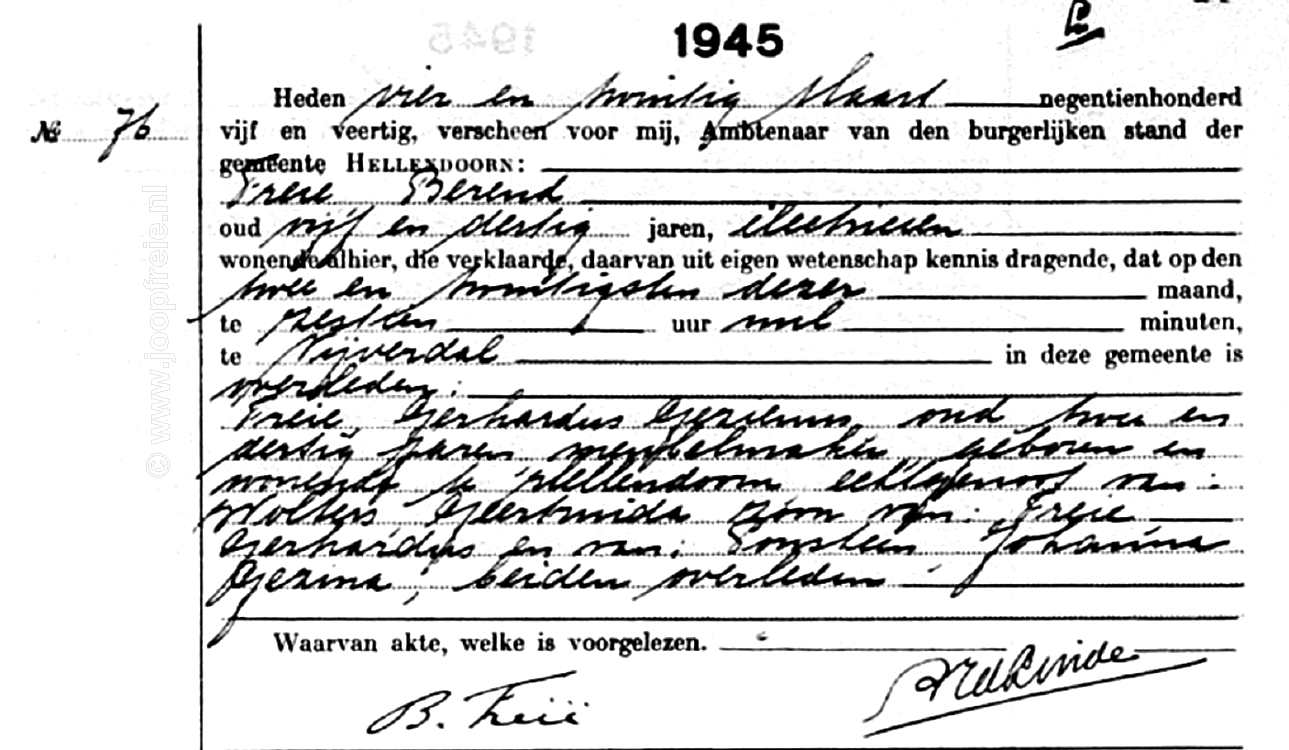 1945
Heden vier en twintig Maart negentienhonderd
№ 76
vijf en veertig, verscheen voor mij, Ambtenaar van den burgerlijken stand der
gemeente HELLENDOORN:
Freie Berend
oud vijf en dertig jaren, electricien
wonende alhier, die verklaarde, daarvan uit eigen wetenschap kennis dragende, dat op den
twee en twintigsten dezer maand,
te zestien uur nul minuten,
te Nijverdal in deze gemeente is
overleden:
Freie, Gerhardus Gezienus oud twee en
dertig jaren meubelmaker geboren en
wonende te Hellendoorn echtgenoot van:
Wolters, Geertruida zoon van: Freie,
Gerhardus en van: Ponsteen Johanna
Gezina, beiden overleden
Waarvan akte, welke is voorgelezen.
B. Freië
© www.joopfreie.nl